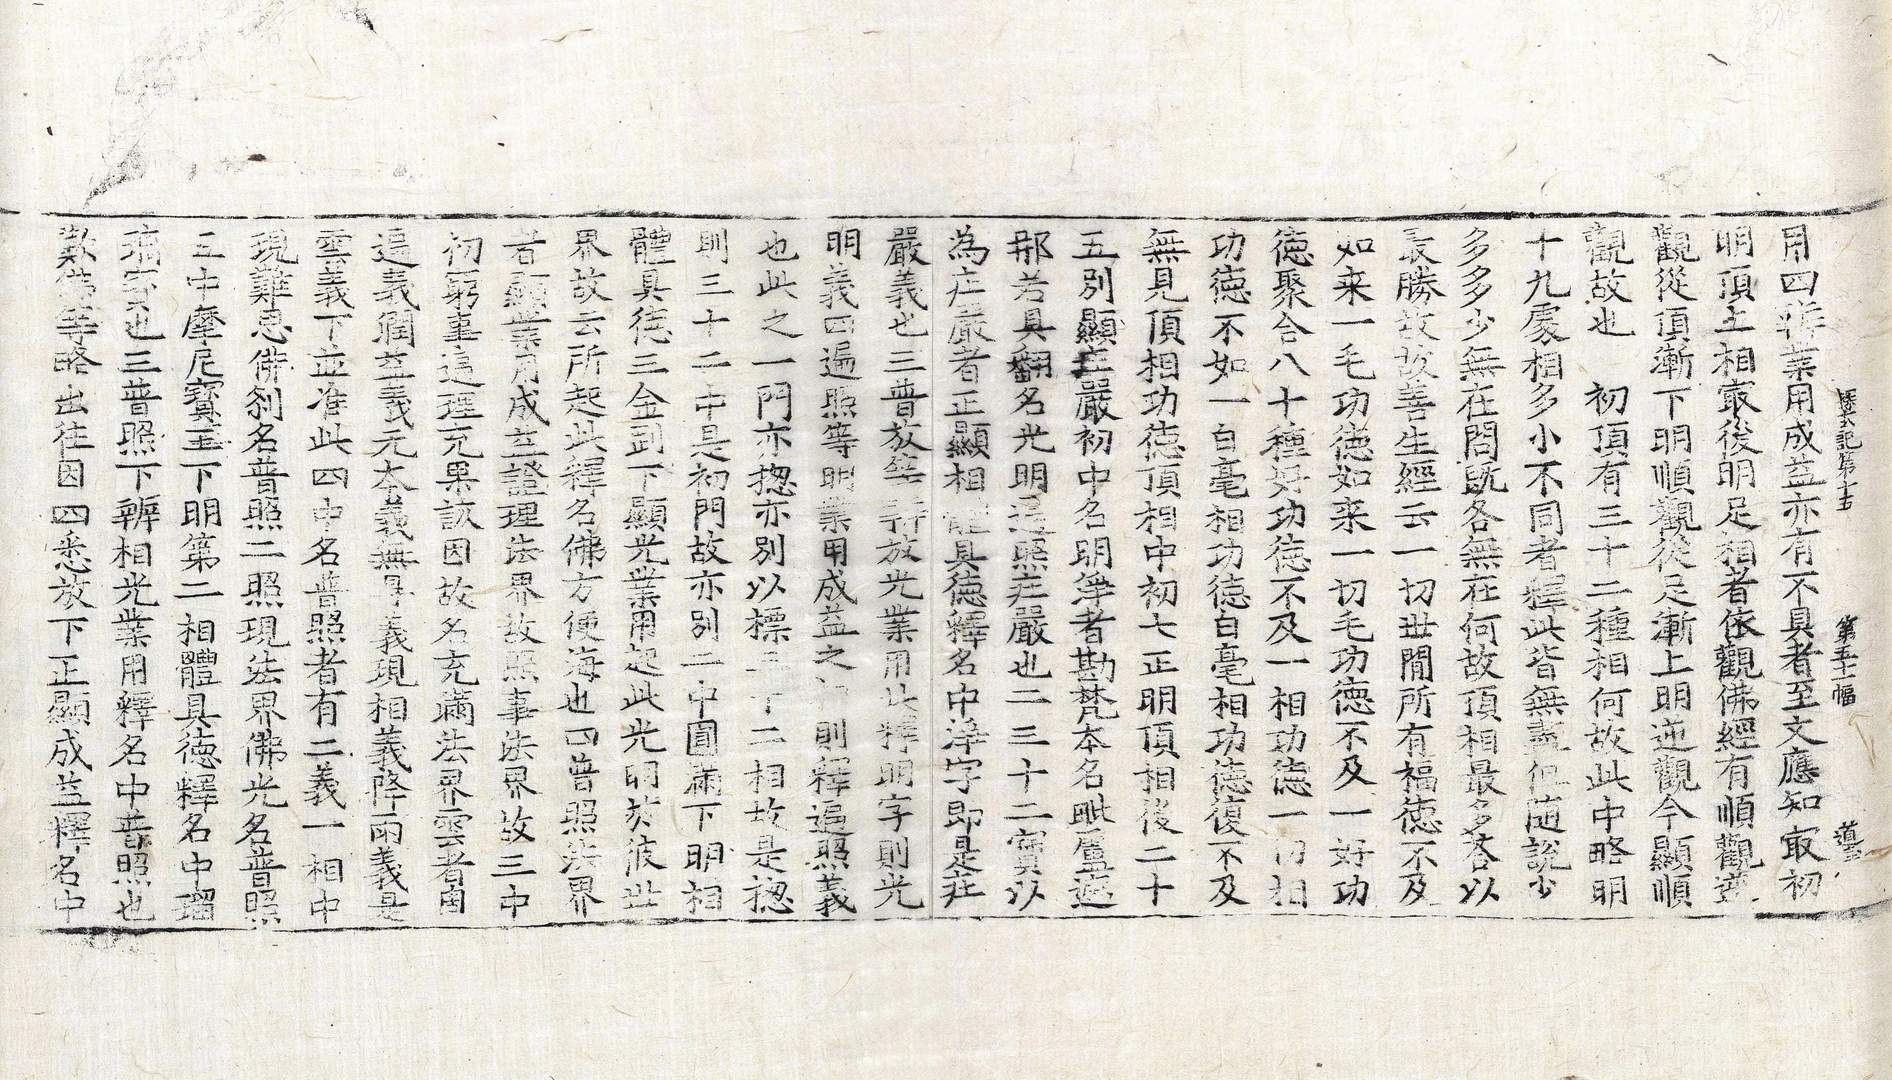 探玄記第十五 第五十一幅 道
用四辨業用成益亦有不具者至文應知取初
明頂上相最後明足相者依觀佛經有順觀逆
觀從頂漸下明順觀從足漸上明逆觀今顯順
觀故也 初頂有三十二種相何故此中略明
十九處相多小不同者釋此皆無盡但随說少
多多少無在問既各無在何故頂相最多答以
最勝故故善生經云一切世間所有福德不及
如来一毛功德如来一切毛功德不及一好功
德聚合八十種好功德不及一相功德一切相
功德不如一白毫相功德白毫相功德復不及
無見頂相功德頂相中初七正明頂相後二十
五別顯庄嚴初中名明淨者勘梵本名毗盧遮
那若具翻名光明遍照庄嚴也二三十二寶以
為庄嚴者正顯相體具德釋名中淨字即是庄
嚴義也三普放等辨放光業用此釋明字則光
明義四遍照等明業用成益之 則釋遍照義
也此之一門亦揔亦別以標三十二相故是揔
則三十二中是初門故亦別二中圓滿下明相
體具德三金剛下顯光業用起此光明於彼世
界故云所起此釋名佛方便海也四普照法界
者顯業用成益證理法界故照事法界故三中
初窮事遍理充果該因故名充滿法界雲者
遍義潤益義元本義無 義現相義降雨義是
雲義下並准此四中名普照者有二義一相中
現難思佛刹名普照二照現法界佛光名普照
五中摩尼寶王下明第二相體具德釋名中瑠
璃 也三普照下辨相光業用釋名中普照也
數佛等略出往因四悉放下正顯成益釋名中